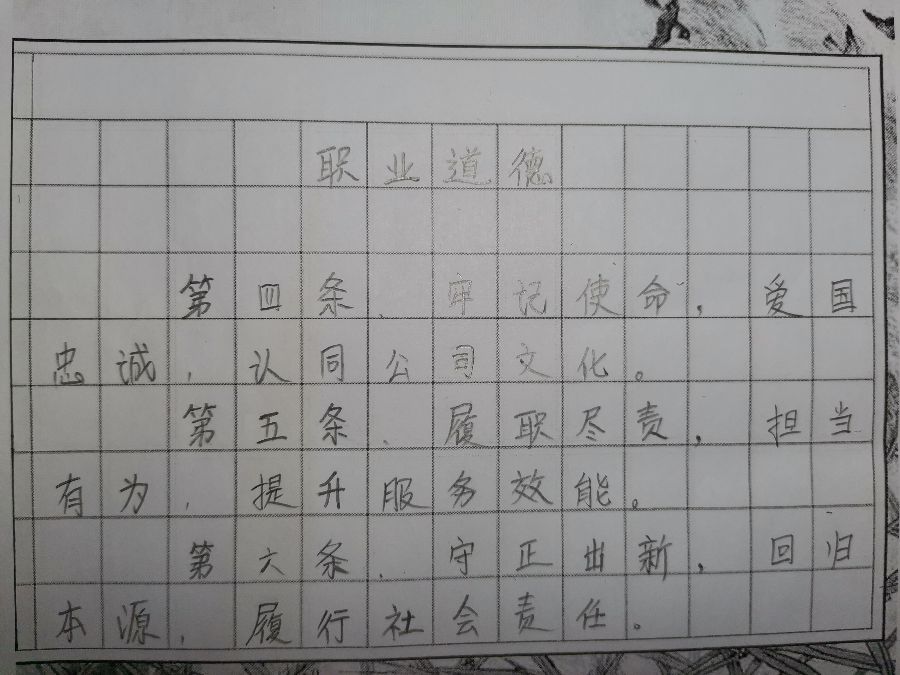 职业道德
第四条、牢记使命，爱国
忠诚，认同公司文化。
第五条、履职尽责，担当
有为，提升服务效能。
第六条、守正出新，回归
本源，履行社会责任。